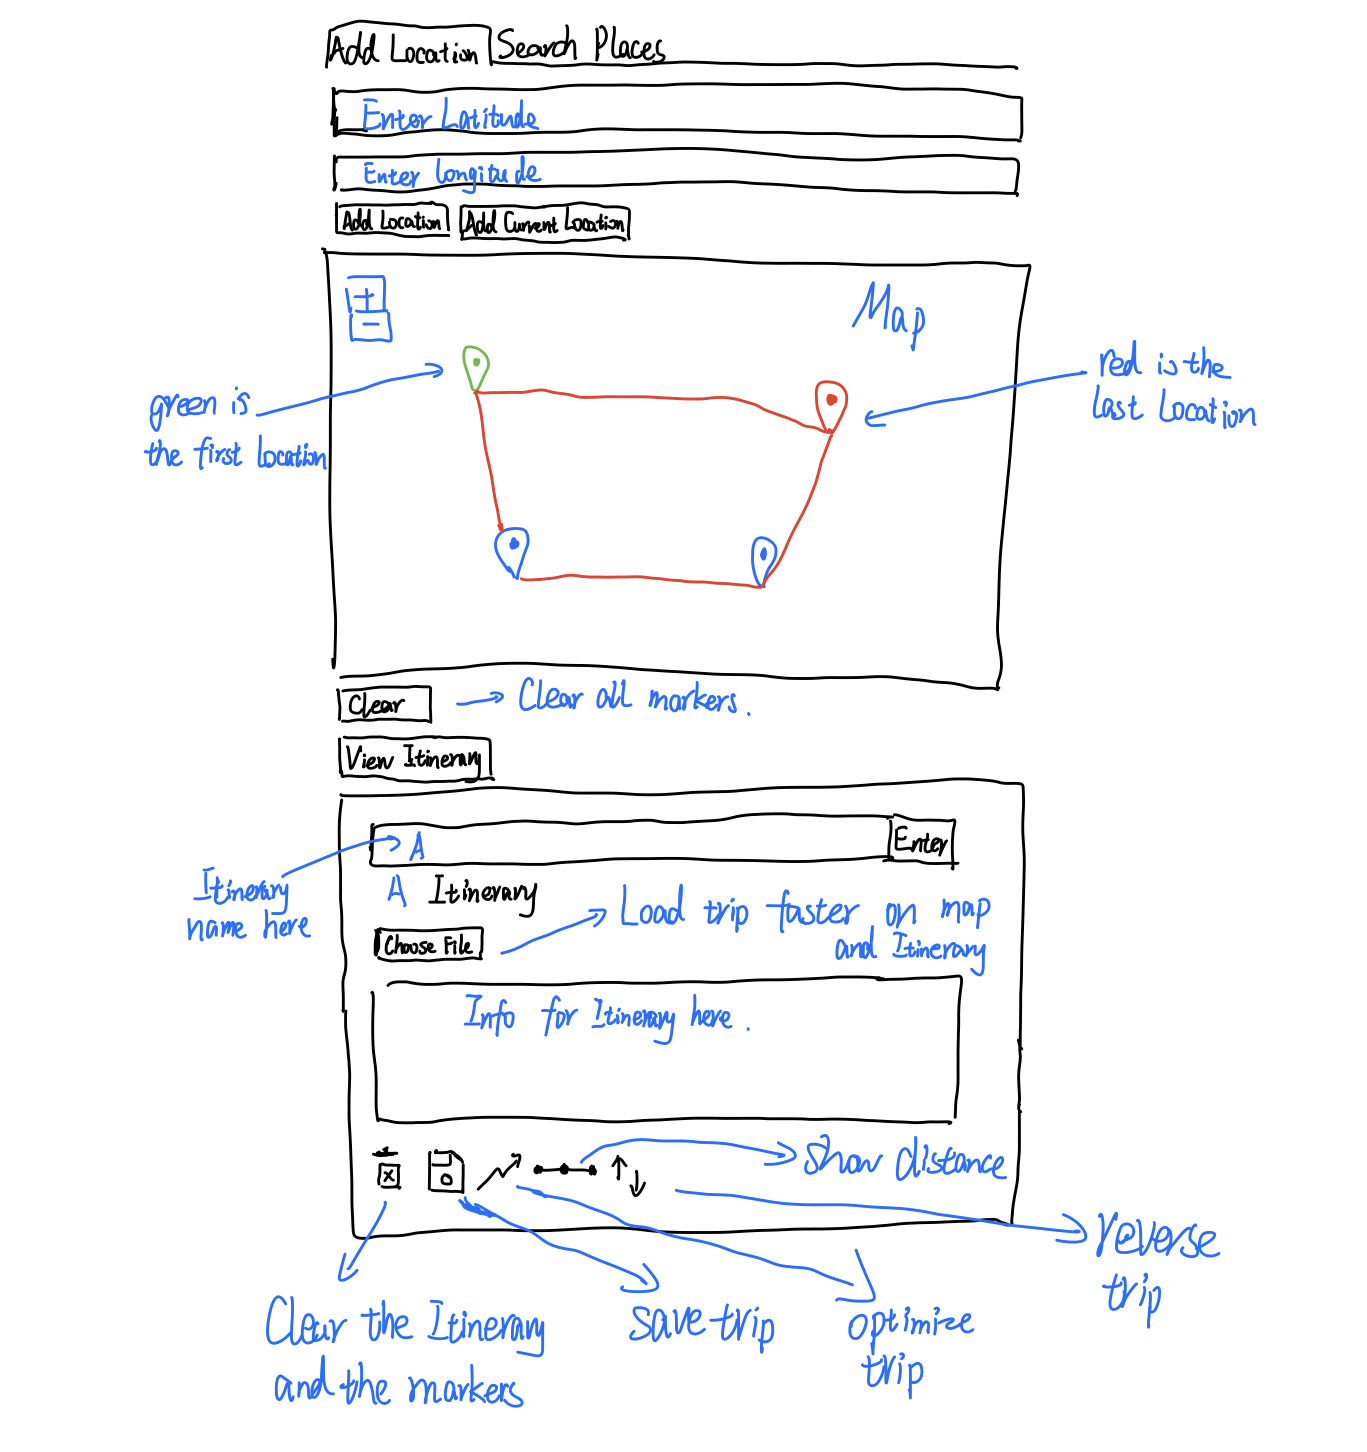 Add Location Search Places
Enter Latitude
Enter Longitude
Add Location Add Current Location
+
Map
−
green is
the first location
red is the
last location
Clear
Clear all markers.
View Itinerary
A
Enter
Itinerary
name here
A Itinerary
Choose File
Load trip faster on map
and Itinerary
Info for Itinerary here.
show distance
reverse
trip
Clear the Itinerary
and the markers
save trip
optimize
trip